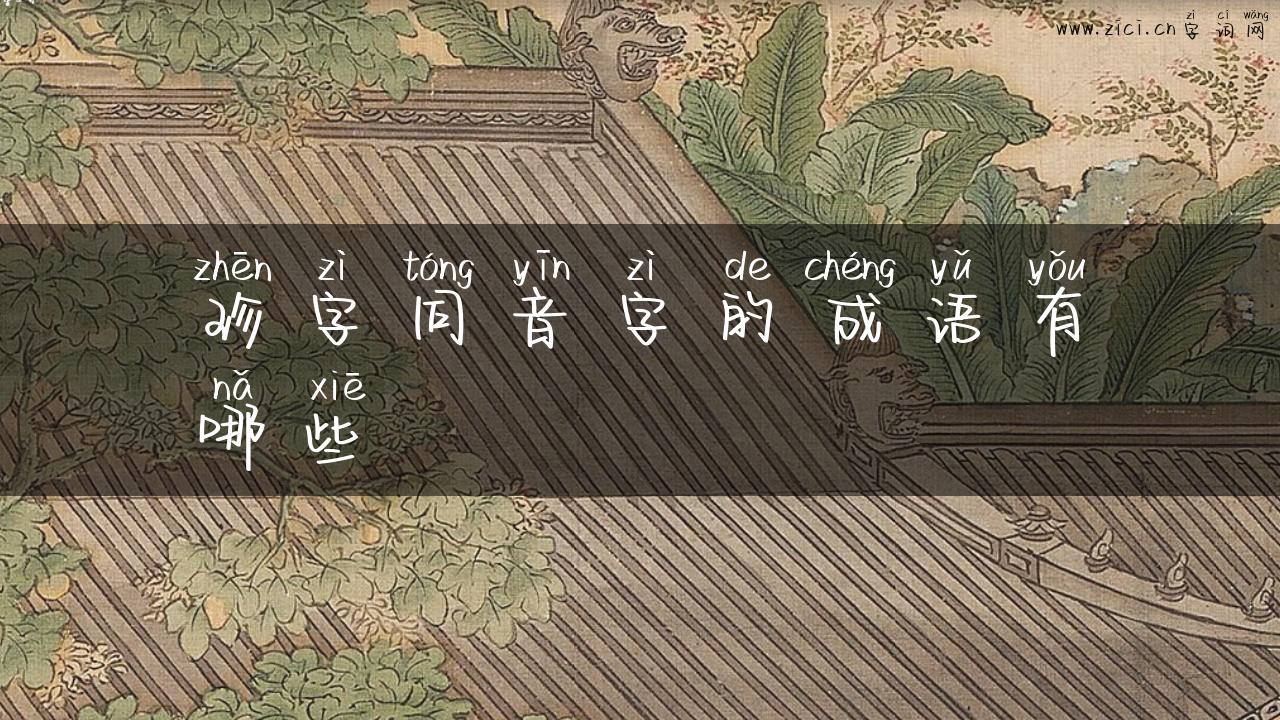 zì cí wǎng
www.zici.cn 字词网
zhēn zì tóng yīn zì de chéng yǔ yǒu
珍字同音字的成语有
nǎ xiē
哪些